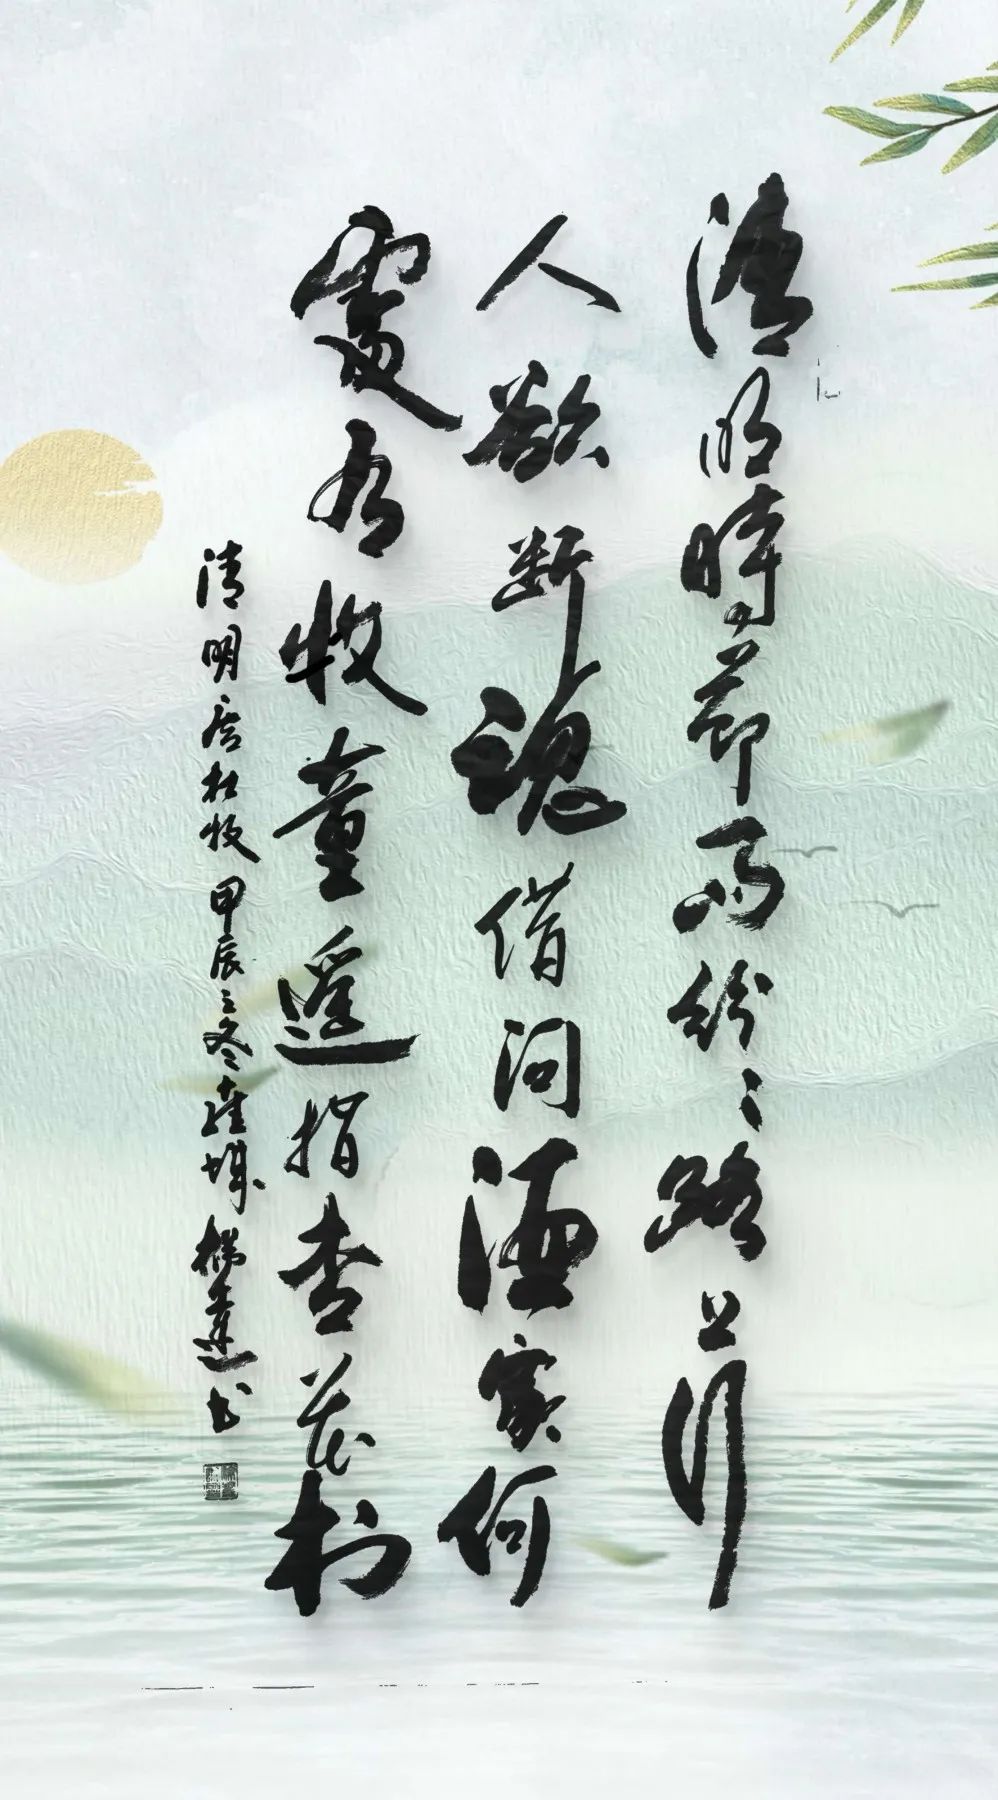 清明時節雨紛〻路上行
人欲断魂借问酒家何
處有牧童遥指杏花村
清明唐杜牧甲辰之冬 城 建书